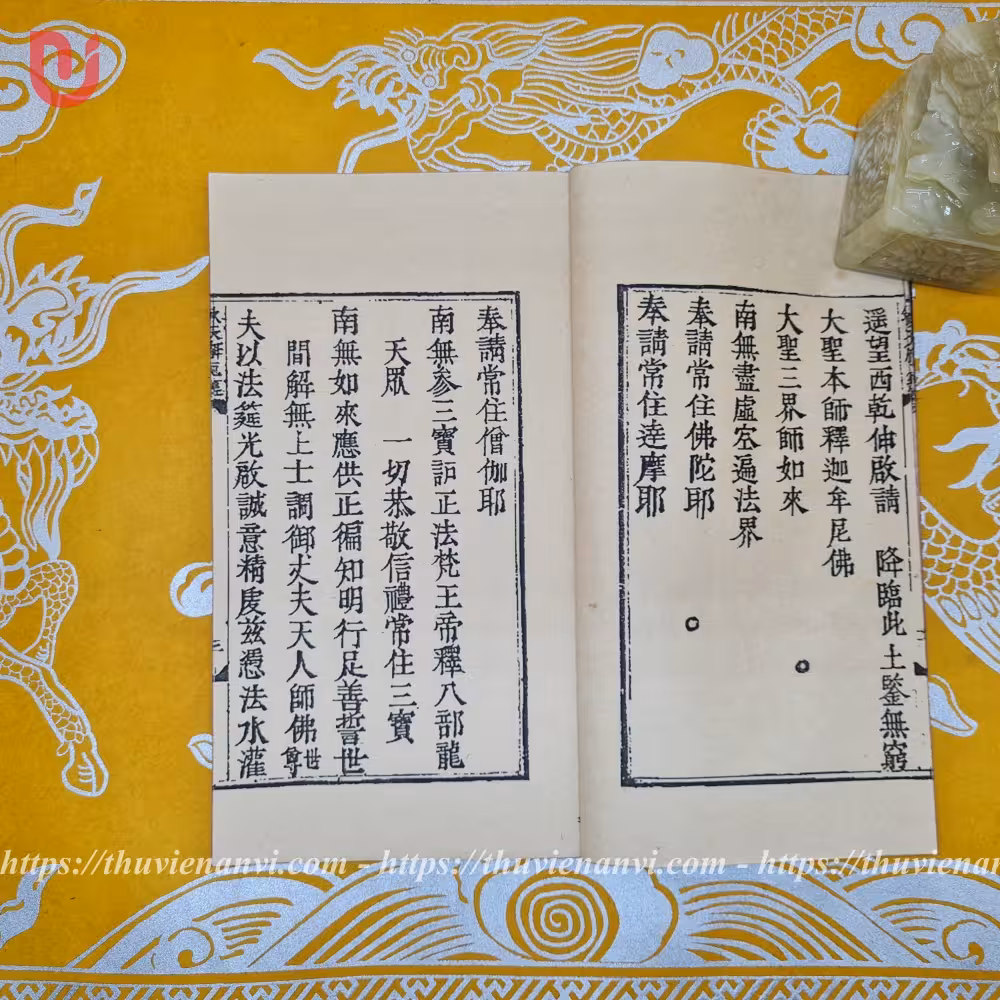 遥望西乾伸啟請　降臨此土鍳無窮
大聖本師釋迦牟尼佛
大聖三界師如來
南無盡虛空遍法界
奉請常住佛陀耶
奉請常住逹摩耶
奉請常住僧伽耶
南無參三寶 正法梵王帝釋八部龍
天眾　一切恭敬信禮常住三寶
南無如來應供正徧知明行足善誓世
間解無上士調御丈夫天人師佛世尊
夫以法筵光啟誠意精虔兹憑法水灌
https://thuvienanvi.com - https://thuvienanvi.com - https://thuvienanvi.com